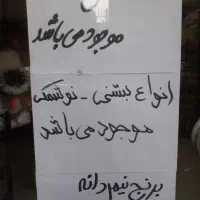 موجود می باشد
انواع بستنی - نوشمکی
موجود می باشد
برنج نیم دانه